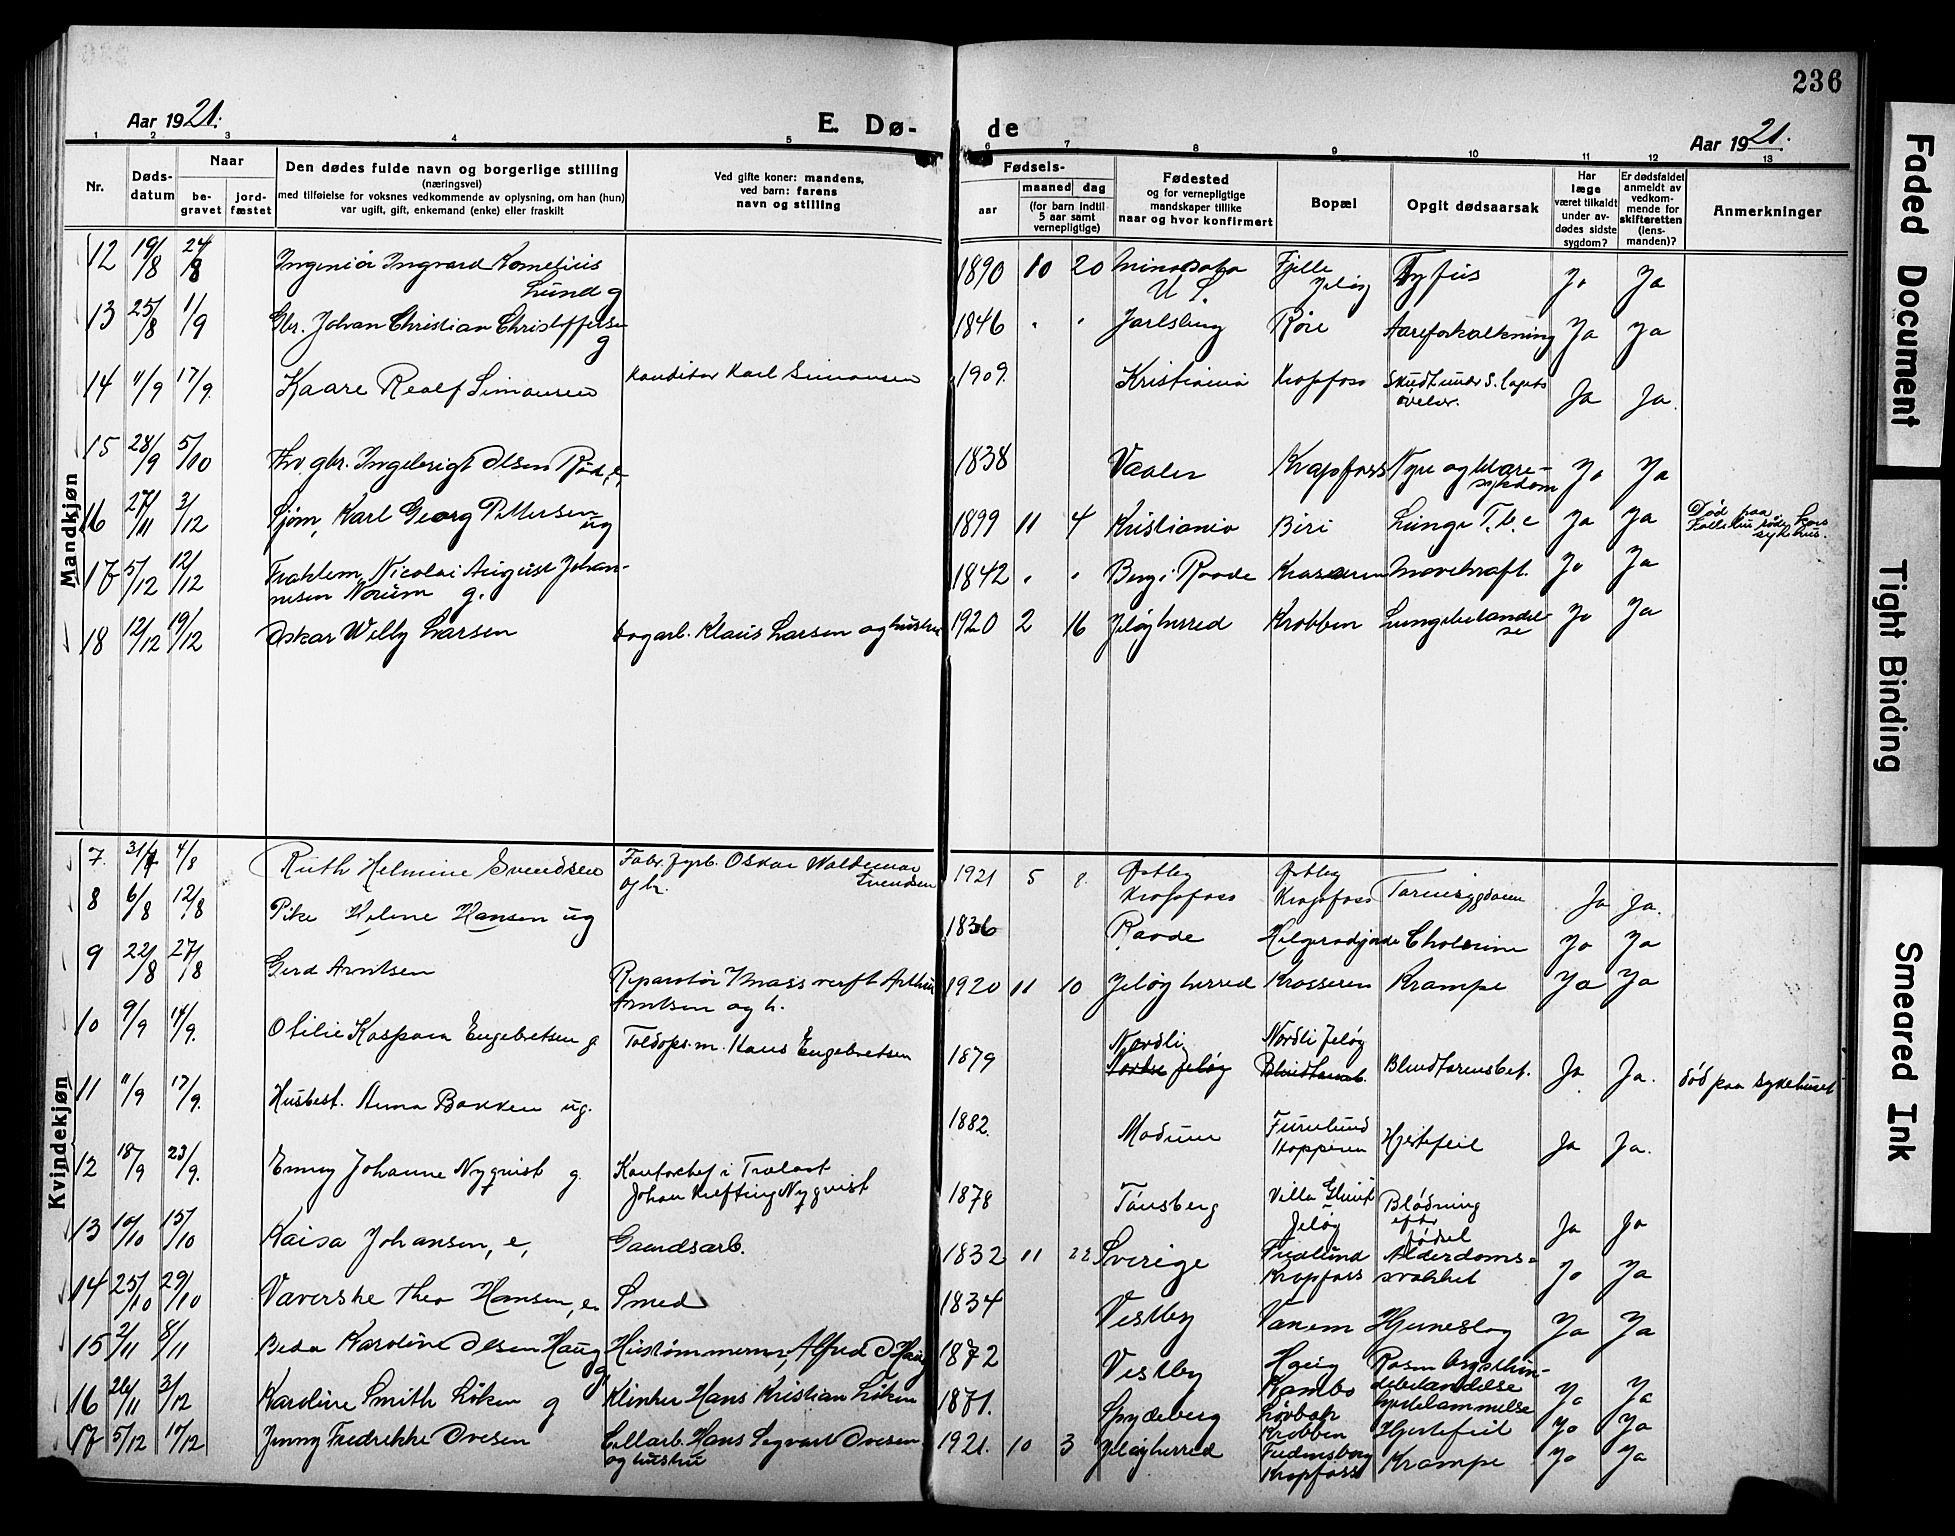 236
Aar 1921.
E. Dø-
de
Aar 1921.
1 2 3 4 5 6 7 8 9 10 11 12 13
Nr.
Døds-
datum
Naar
be-
gravet
jord-
fæstet
Den dødes fulde navn og borgerlige stilling
(næringsvei)
med tilføielse for voksnes vedkommende av oplysning, om han (hun)
var ugift, gift, enkemand (enke) eller fraskilt
Ved gifte koner: mandens,
ved barn: farens
navn og stilling
Fødsels-
aar
maaned
dag
(for barn indtil
5 aar samt
vernepligtige)
Fødested
og for vernepligtige
mandskaper tillike
naar og hvor konfirmert
Bopæl
Opgit dødsaarsak
Har
læge
været tilkaldt
under av-
dødes sidste
sygdom?
Er dødsfaldet
anmeldt av
vedkom-
mende for
skifteretten
(lens-
manden)?
Anmerkninger
Mandkjøn
12 19/8 24/8 Ingeniør Ingvard Kornelius 1890 10 20 Minnesota Fjelle Tyfus Ja Ja
Lund g U S. Jeløy
13 25/8 1/9 Gbr. Johan Christian Christoffersen 1846 " " Jarlsberg Røre Aareforkalkning Ja Ja
g
14 11/9 17/9. Kaare Reolf Simonsen Konditor Karl Simonsen 1909. Kristiania Kropfoss Skudt under S. lagets Ja Ja.
øvelser.
15 28/9 5/10 gbr. Ingebrigt Olsen Rød, e. 1838 Vaaler Krapfoss Nyre og blære- Ja Ja
sykdom
16 27/11 3/12 Sjøm, Karl Georg Pettersen 1899 11 4 Kristiania Biri Lunge T.b.c Ja Ja Død paa
ug røde kors
sykehus.
17 5/12 12/12 Nicolai August Johan- 1842 " " Berg i Raade Krosseren Mavekræft. Ja Ja
nesen Norum g.
18 12/12 19/12 Oskar Willy Larsen Larsen og hustru 1920 2 16 Jeløy herred Krobben Lungebetændel- Ja Ja
se
Kvindekjøn
7. 31/7 4/8 Ruth Helmine Svendsen Fabr. fyrb. Oskar Waldemar 1921 5 8. Østby Østby Tarmsygdom Ja Ja.
Svendsen
og h. Kropfoss Kropfoss
8 6/8 12/8 Pike Helene Hansen ug 1836 Raade Cholerine Ja Ja
9 22/8 27/8 Gerd Arntsen Reparatør Moss verft Arthur 1920 11 10 Jeløy herred Krosseren Krampe Ja Ja
Arntsen og h.
10 9/9 14/9. Otilie Kaspara Engebretsen g Toldops.m. Hans Engebretsen 1879 Nordli Nordli Jeløy Blindtarmsbet. Ja Ja. død paa sykehuset
Jeløy
11 11/9 17/9. Husbest. Anna Bakken ug. 1882. Modum Furulund Hjertefeil Ja Ja.
12 18/9 23/9. Emmy Johanne Nyqvist g. Kontorchef i Trælast 1878 Tønsberg Villa Blødning Ja Ja
Johan Krefting Nyqvist Jeløy efter
fødsel
13 10/10 15/10 Kaisa Johansen, e, Gaardsarb. 1832 11 22 Sverige Alderdoms- Ja Ja
Kropfoss svakhet
14 25/10 29/10 Thea Hansen, e. Smed 1834 Vestby Vanem Hjerneslag Ja Ja
15 2/11 8/11 Beda Karoline Olsen Haug Hustømmerm. Alfred O Haug 1872 Vestby Ja Ja
g Kambo
16 26/11 3/12 Karoline Smith Løken g Klinker Hans Kristian Løken 1871. Spydeberg Hjertefeil Ja Ja
Krobben
17 5/12 10/12 Jenny Fredrikke Ovesen Cellarb. Hans Segvart Ovesen 1921. 10 3 Jeløyherred Fredensborg Krampe Ja Ja
og hustru Kropfoss
Faded Document
Tight Binding
Smeared Ink